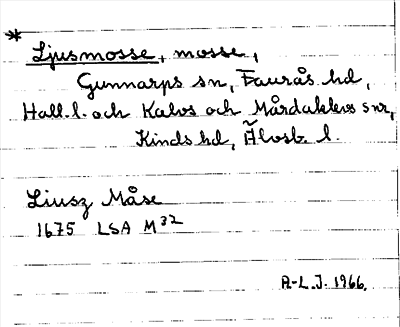 * Ljusmosse, mosse,
Gunnarps sn, Faurås hd,
Hall. l. och Kalvs och Mårdaklevs snr,
Kinds hd, Älvsb. l.
Liusz Måse
1675 LSA M 32
A-L. J. 1966.